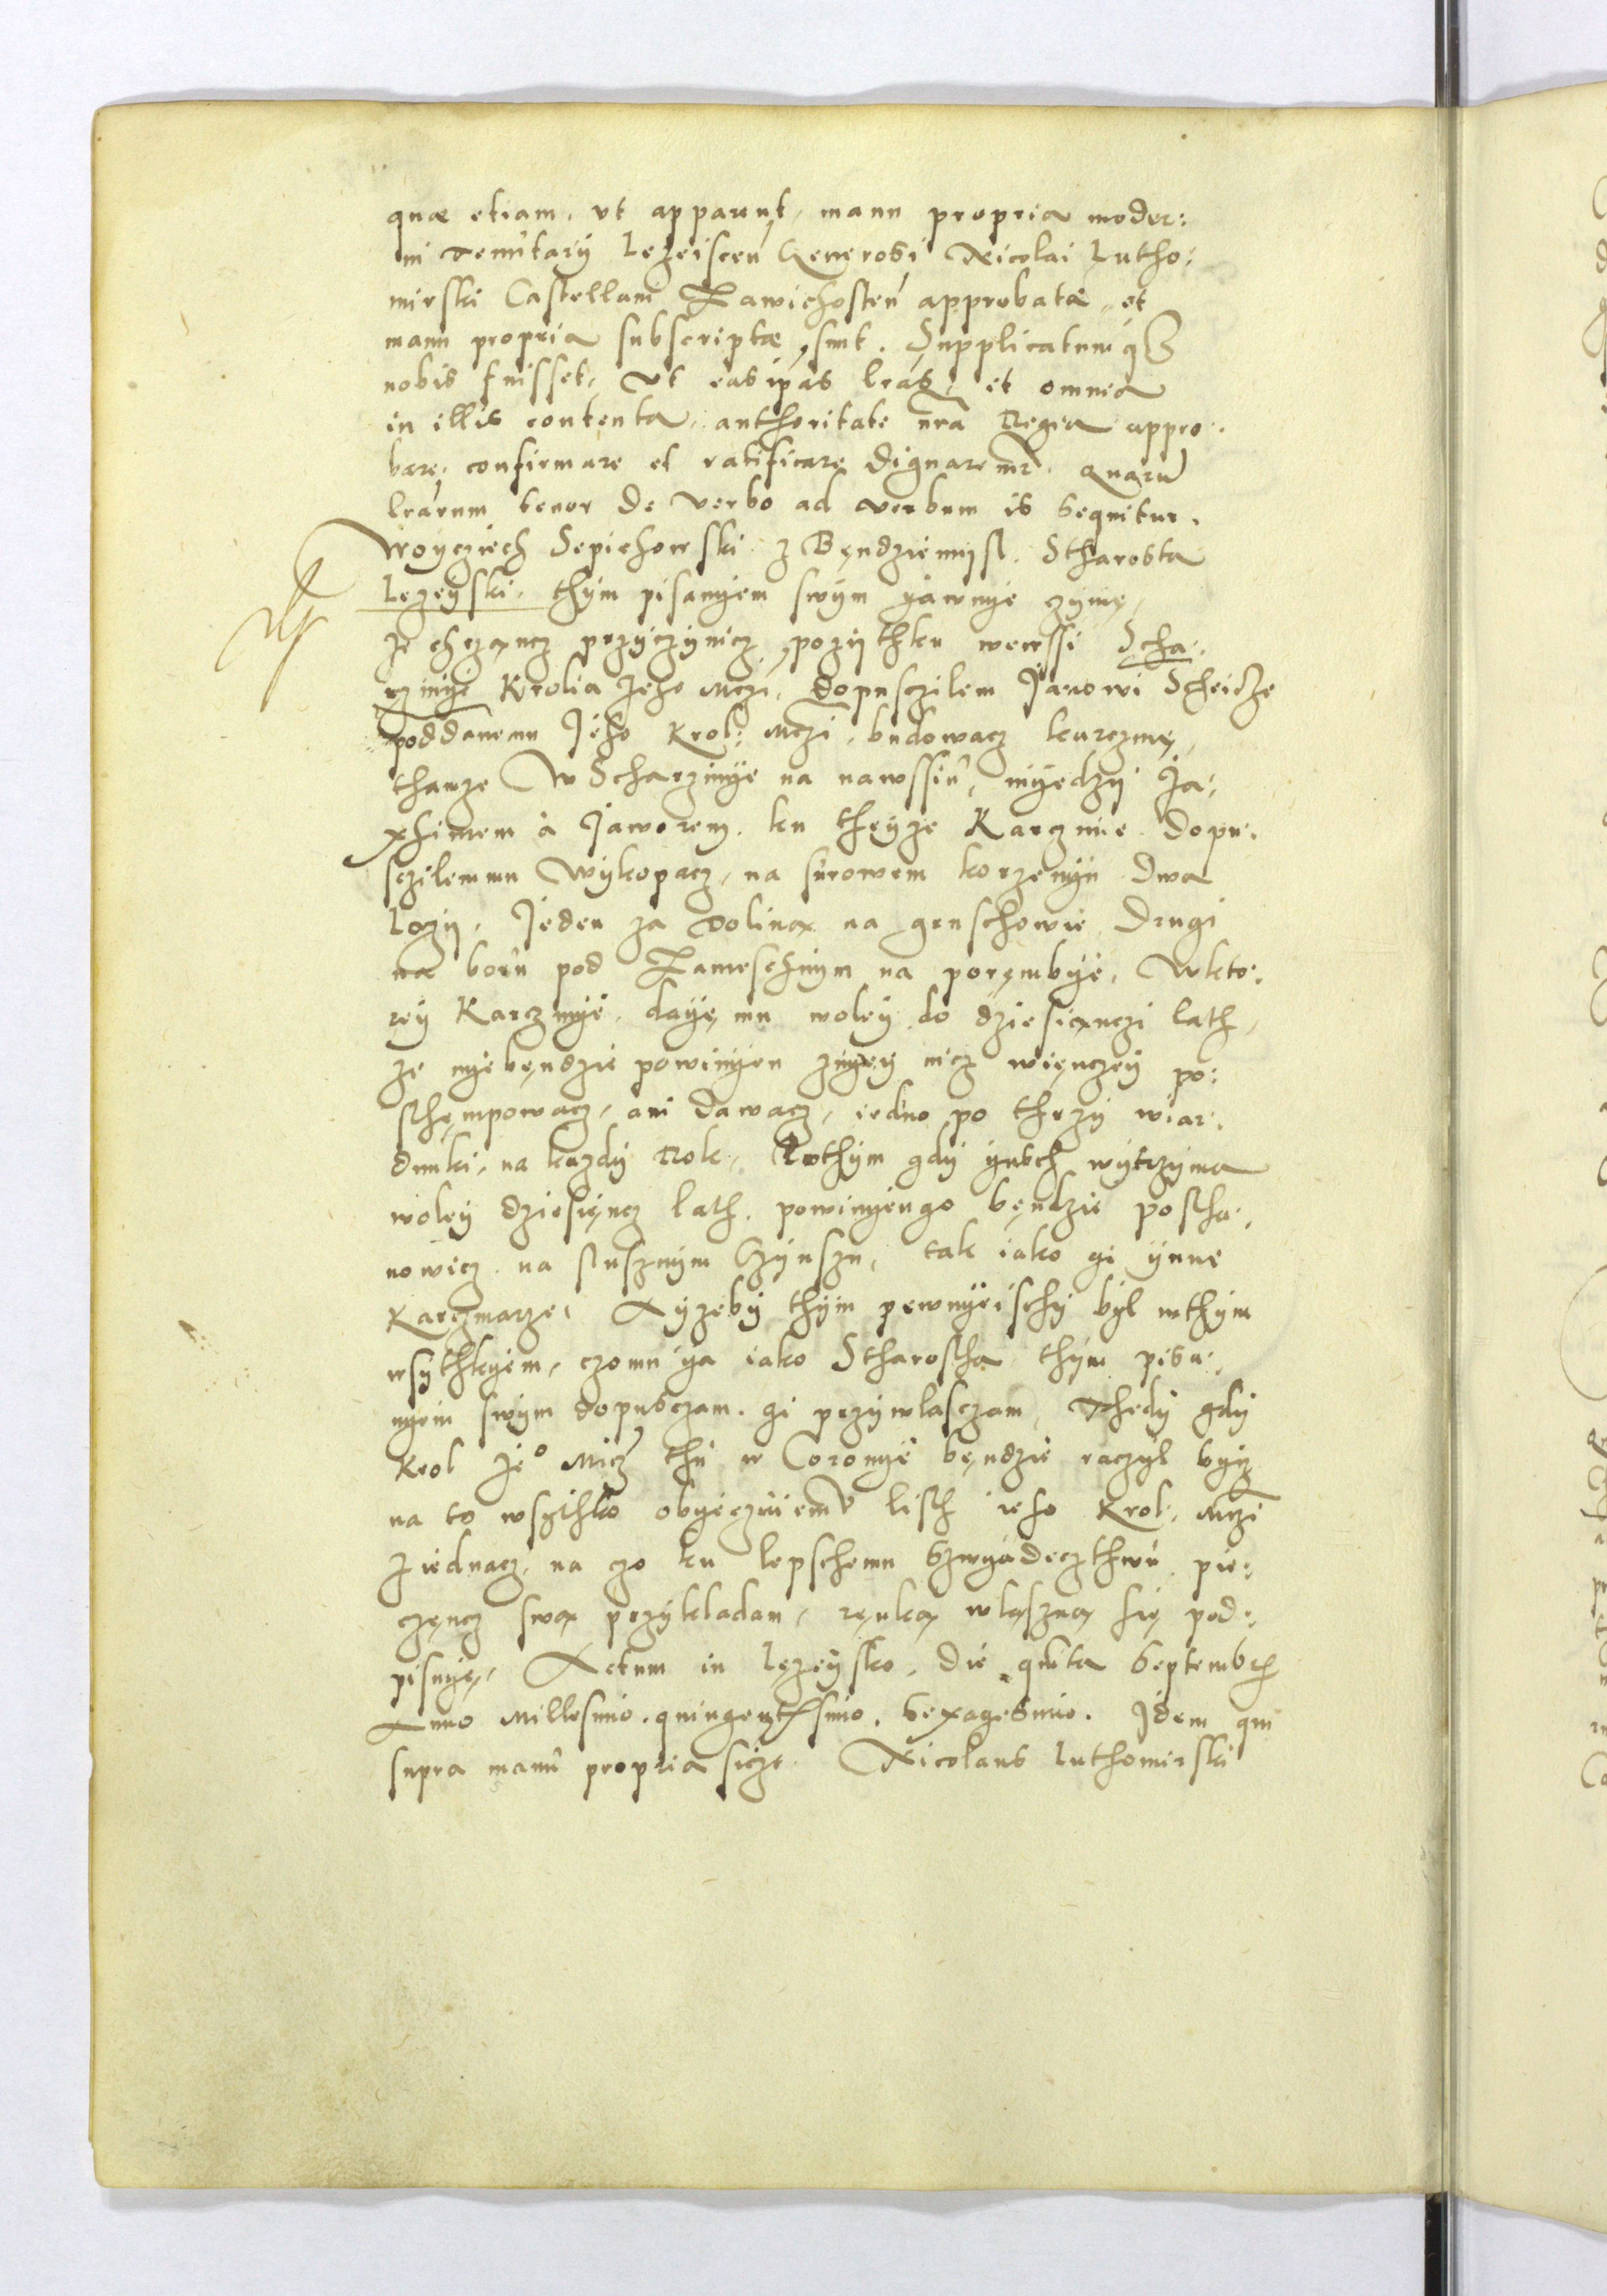 quæ etiam, vt apparunt, manu propria moder:
ni tenutarÿ Lezeiscen̄ Generosi Nicolai Lutho:
mirski Castellani Zawichosten̄ approbatæ, et
manu propria subscriptæ sunt. Supplicatumq3
nobis fuisset, vt eas ip̄as lr̄as, et omnia
in illis contenta, authoritate nr̄a Regia appro:
bare, confirmare et ratificare dignaremr̄. Quarū
lr̄arum tenor de verbo ad verbum is sequitur.
Woycziech Sepichowski z Bęndziemysl. Stharosta
Lezeÿski, thÿm pisanÿem swÿm ÿawnÿe zÿmę,
Jż chczancz przÿczÿnicz pozÿthku wewssi Scha:
rzinÿe Krolia Jeho Mczi, dopusczilem Janowi Scheicze
poddanemu Jeho Krol: Mczi, budowacz karczmę,
thamze W Scharzinÿe na nawssiu, mÿedzÿ Ja:
xhimem à Jaworem, ku theÿze Karczmie dopu:
sczilemmu Wÿkopacz, na surowem korzenÿu dwa
Lazÿ, Jeden za dolina na gruschowie drugi
na boru pod Zameschnÿm na porembÿe, Wkto:
reÿ Karczmÿe, daÿę mu woleÿ do dziesiąnczi lath,
ze nÿebęndzie powinÿen znÿeÿ nicz więnczeÿ po:
sthęmpowacz, ani dawacz, iedno po thrzÿ wiar:
dunki, na kazdÿ Rok, Potÿm gdÿ ÿusch wÿtrzÿma
woleÿ dziesięncz lath, powinÿengo bęndzie postha:
nowicz na slusznÿm Czÿnszu, tak iako gi ÿnne
Karczmarze, Aÿzebÿ thÿm pewnÿeischÿ bÿl wthÿm
wsÿthkÿem, czomu ÿa iako Stharostha thÿm pisa:
nÿem swÿm dopusczam. gi przÿwlasczam, Thedÿ gdÿ
Krol Je° Micz thu w Coronÿe bęndzie raczÿl bÿcz
na to wsÿthko obÿeczuiemu listh ieho Krol: Mczi
ziednacz, na czo ku lepschemu Szwÿadecthwu, pie:
częncz swa przÿkladam, ręnka wlaszna się pod:
pisuÿę, Actum in Lezeÿsko, die quīta Septembr̄
Anno Millesimo. quingentesimo. Sexagesimo. Idem qui
supra manu propria sczr. Nicolaus Luthomirski